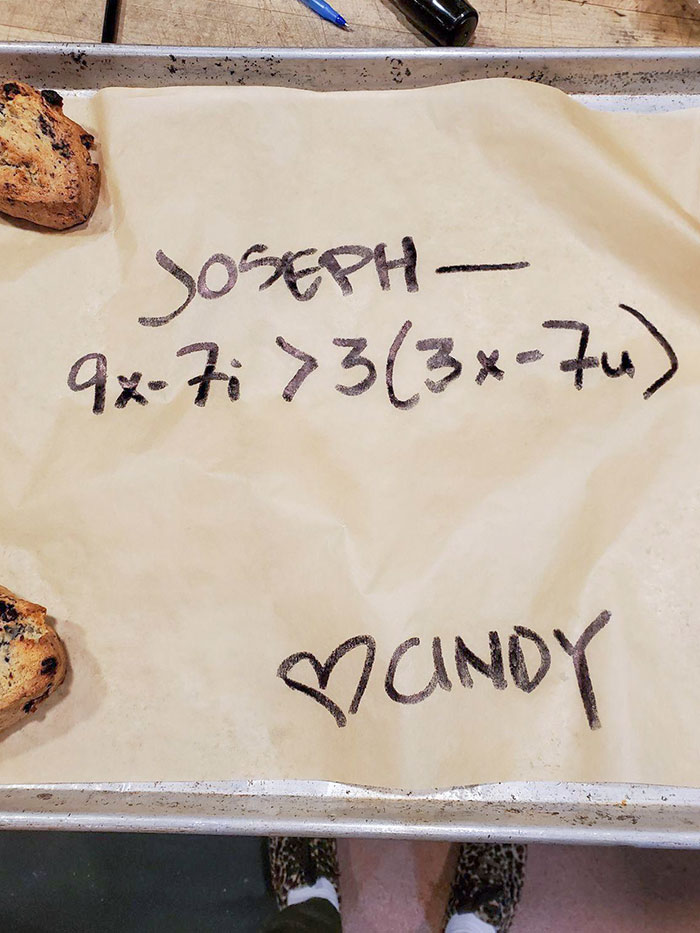 JOSEPH —
9x-7i > 3(3x-7u)
♥ CINDY